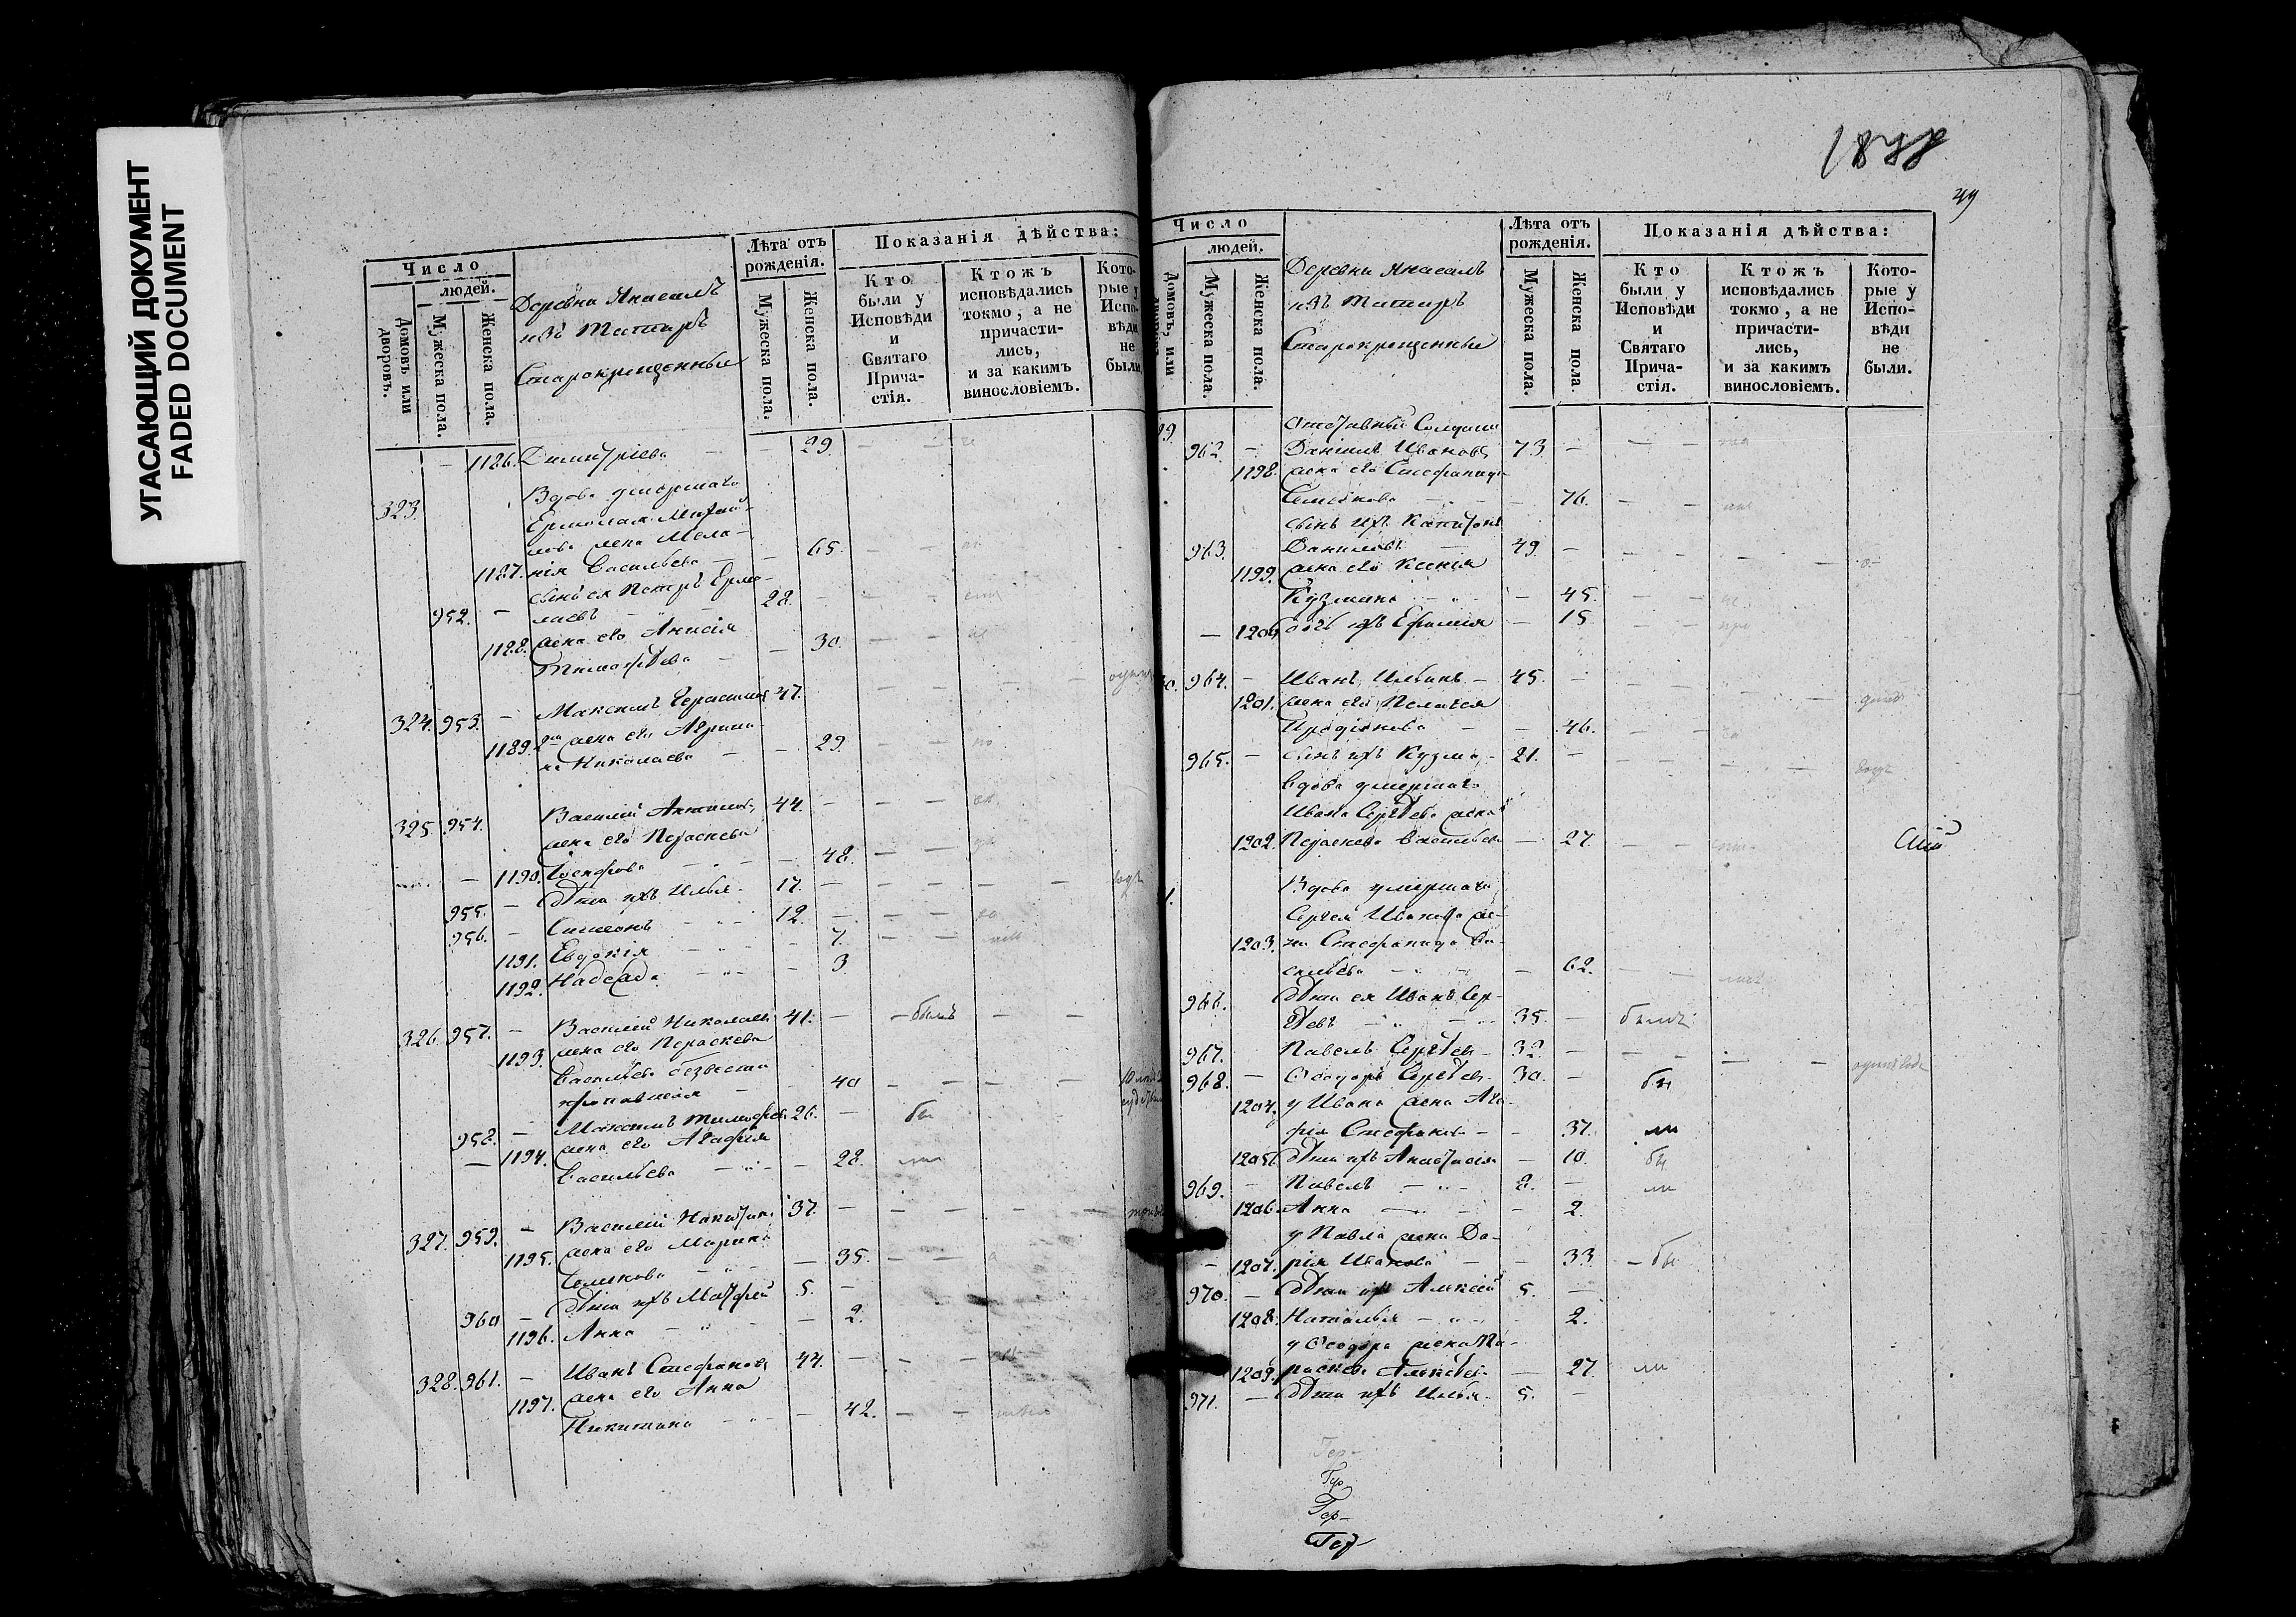 УГАСАЮЩИЙ ДОКУМЕНТ
FADED DOCUMENT
Число
людей.
Домовъ или дворовъ.
Мужеска пола.
Женска пола.
Деревни
изъ Татаръ
Старокрещенные
Лѣта отъ рожденія.
Мужеска пола.
Женска пола.
Показанія дѣйства:
Кто были у Исповѣди и Святаго Прича-стія.
Ктожъ исповѣдались токмо, а не причасти-лись, и за какимъ винословіемъ.
Кото-рые у Испо-вѣди не были.
1186. Димитріева — — 29.
323. Вдова умершаго
Ермолая Михай-
лова жена Мела-
1187. нія Васильева — — 65.
952. — сынъ ея Петръ Ермо-
лаевъ 28.
1188. жена его Анисія
Тимофѣева — — 30.
324. 953. — Максимъ Герасимовъ 47.
1189. 2я жена его Агрипи
на Николаева — — 29.
325. 954. Василій Антиповъ 44.
жена его Параскева
— 1190. Іосифова — 48.
955. — дѣти ихъ Илья 17.
956. — Симеонъ 12.
1191. Евдокія — 7.
1192. Надежда — 3
326. 957. — Василій Николаевъ 41. — былъ
1193. жена его Параскева
Васильева безвѣстно
пропавшая — 40
958. — Максимъ Тимофѣевъ 26.
— 1194. жена его Агафія
Васильева — 28.
327. 959. — Василій Никитинъ 37.
1195. жена его Марина
Семенова — 35.
960 — дѣти ихъ Матфей 5.
1196. Анна — 2.
328. 961. — Иванъ Стефановъ 44.
1197. жена его Анна
Никитина — 42.
1848
49
Число
людей.
Домовъ, или
Мужеска пола.
Женска пола.
Деревни
изъ Татаръ
Старокрещенные
Лѣта отъ рожденія.
Мужеска пола.
Женска пола
Показанія дѣйства:
Кто были у Исповѣди и Святаго Прича-стія.
Ктожъ исповѣдались токмо, а не причасти-лись, и за какимъ винословіемъ.
Кото-рые у Испо-вѣди не были.
Отставный Солдатъ
962 — Даніилъ Ивановъ 73.
1198. жена его Стефанида
Семенова — 76.
сынъ ихъ Капитонъ
963. Даниловъ 49.
1199. жена его Ксенія
Кузмина — 45.
— 1200 дочь ихъ Ефимія — 15
964. — Иванъ Ильинъ — 45.
1201. жена его Пелагея
Иродіонова — 46.
965. — сынъ ихъ Кузма 21.
вдова умершаго
Ивана Сергѣева жена
1202. Параскева Васильева — 27.
Вдова умершаго
Сергея Иванова же-
1203. на Стефанида Ва-
сильева — 62.
966. дѣти ея Иванъ Сер-
гѣевъ 35. — былъ
967. Павелъ Сергѣевъ 32.
968. — Ѳеодоръ Сергѣевъ 30.
1204. у Ивана жена Ага-
фія Стефанова — 37.
1205. дѣти ихъ Анастасія — 10.
969. — Павелъ 8.
1206. Анна — 2.
у Павла жена Да-
— 1207. рія Иванова — 33
970. — дѣти ихъ Алексій 5.
1208. Наталья — 2.
у Ѳеодора жена Па-
1209. раскева Алексѣева — 27
971. — дѣти ихъ Илья 5.